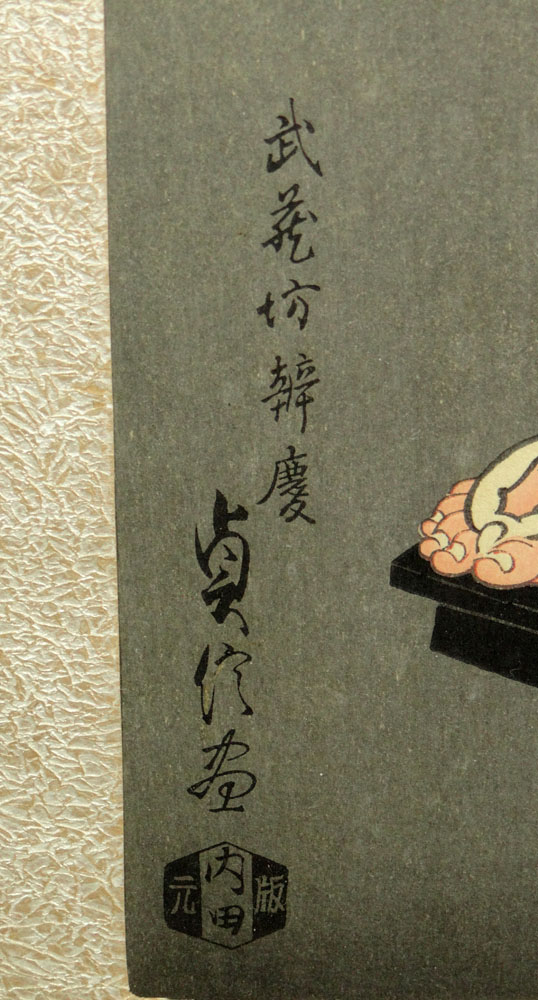 武蔵坊辨慶
貞信画
版元
内田